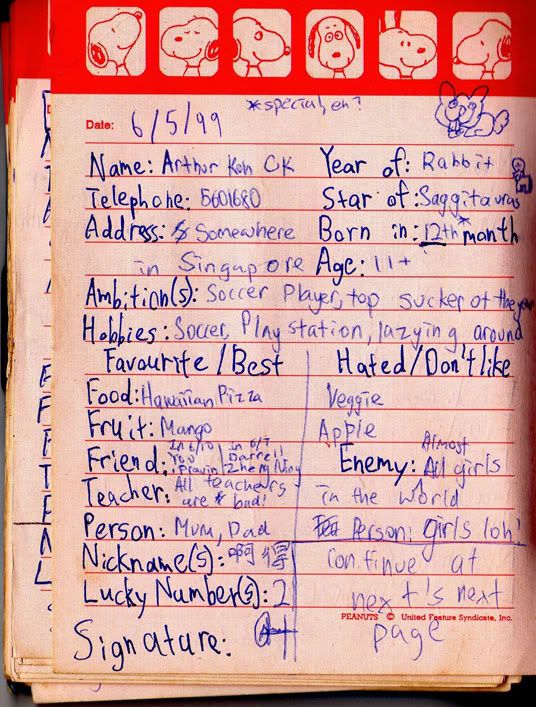 *special, eh?
Date: 6/5/99
Name: Arthur Koh CK Year of: Rabbit
Telephone: 5601680 Star of: Saggitaurus
Address: Somewhere Born in: 12th* month
in Singapore Age: 11+
Ambition(s): Soccer Player, top sucker of the year
Hobbies: Soccer, Play station, lazying around
Favourite/Best Hated/Don't like
Food: Hawaiian Pizza Veggie
Fruit: Mango Apple
Friend: In 6/10 You Pravin In 6/7 Darrell Zheng Ning Enemy: Almost All girls
Teacher: All teachers are bad! in the world
Person: Mum, Dad Person: girls loh!
Nickname(s): 啊得 continue at
Lucky Number(s): 2 next's next
PEANUTS © United Feature Syndicate, Inc.
Signature: page